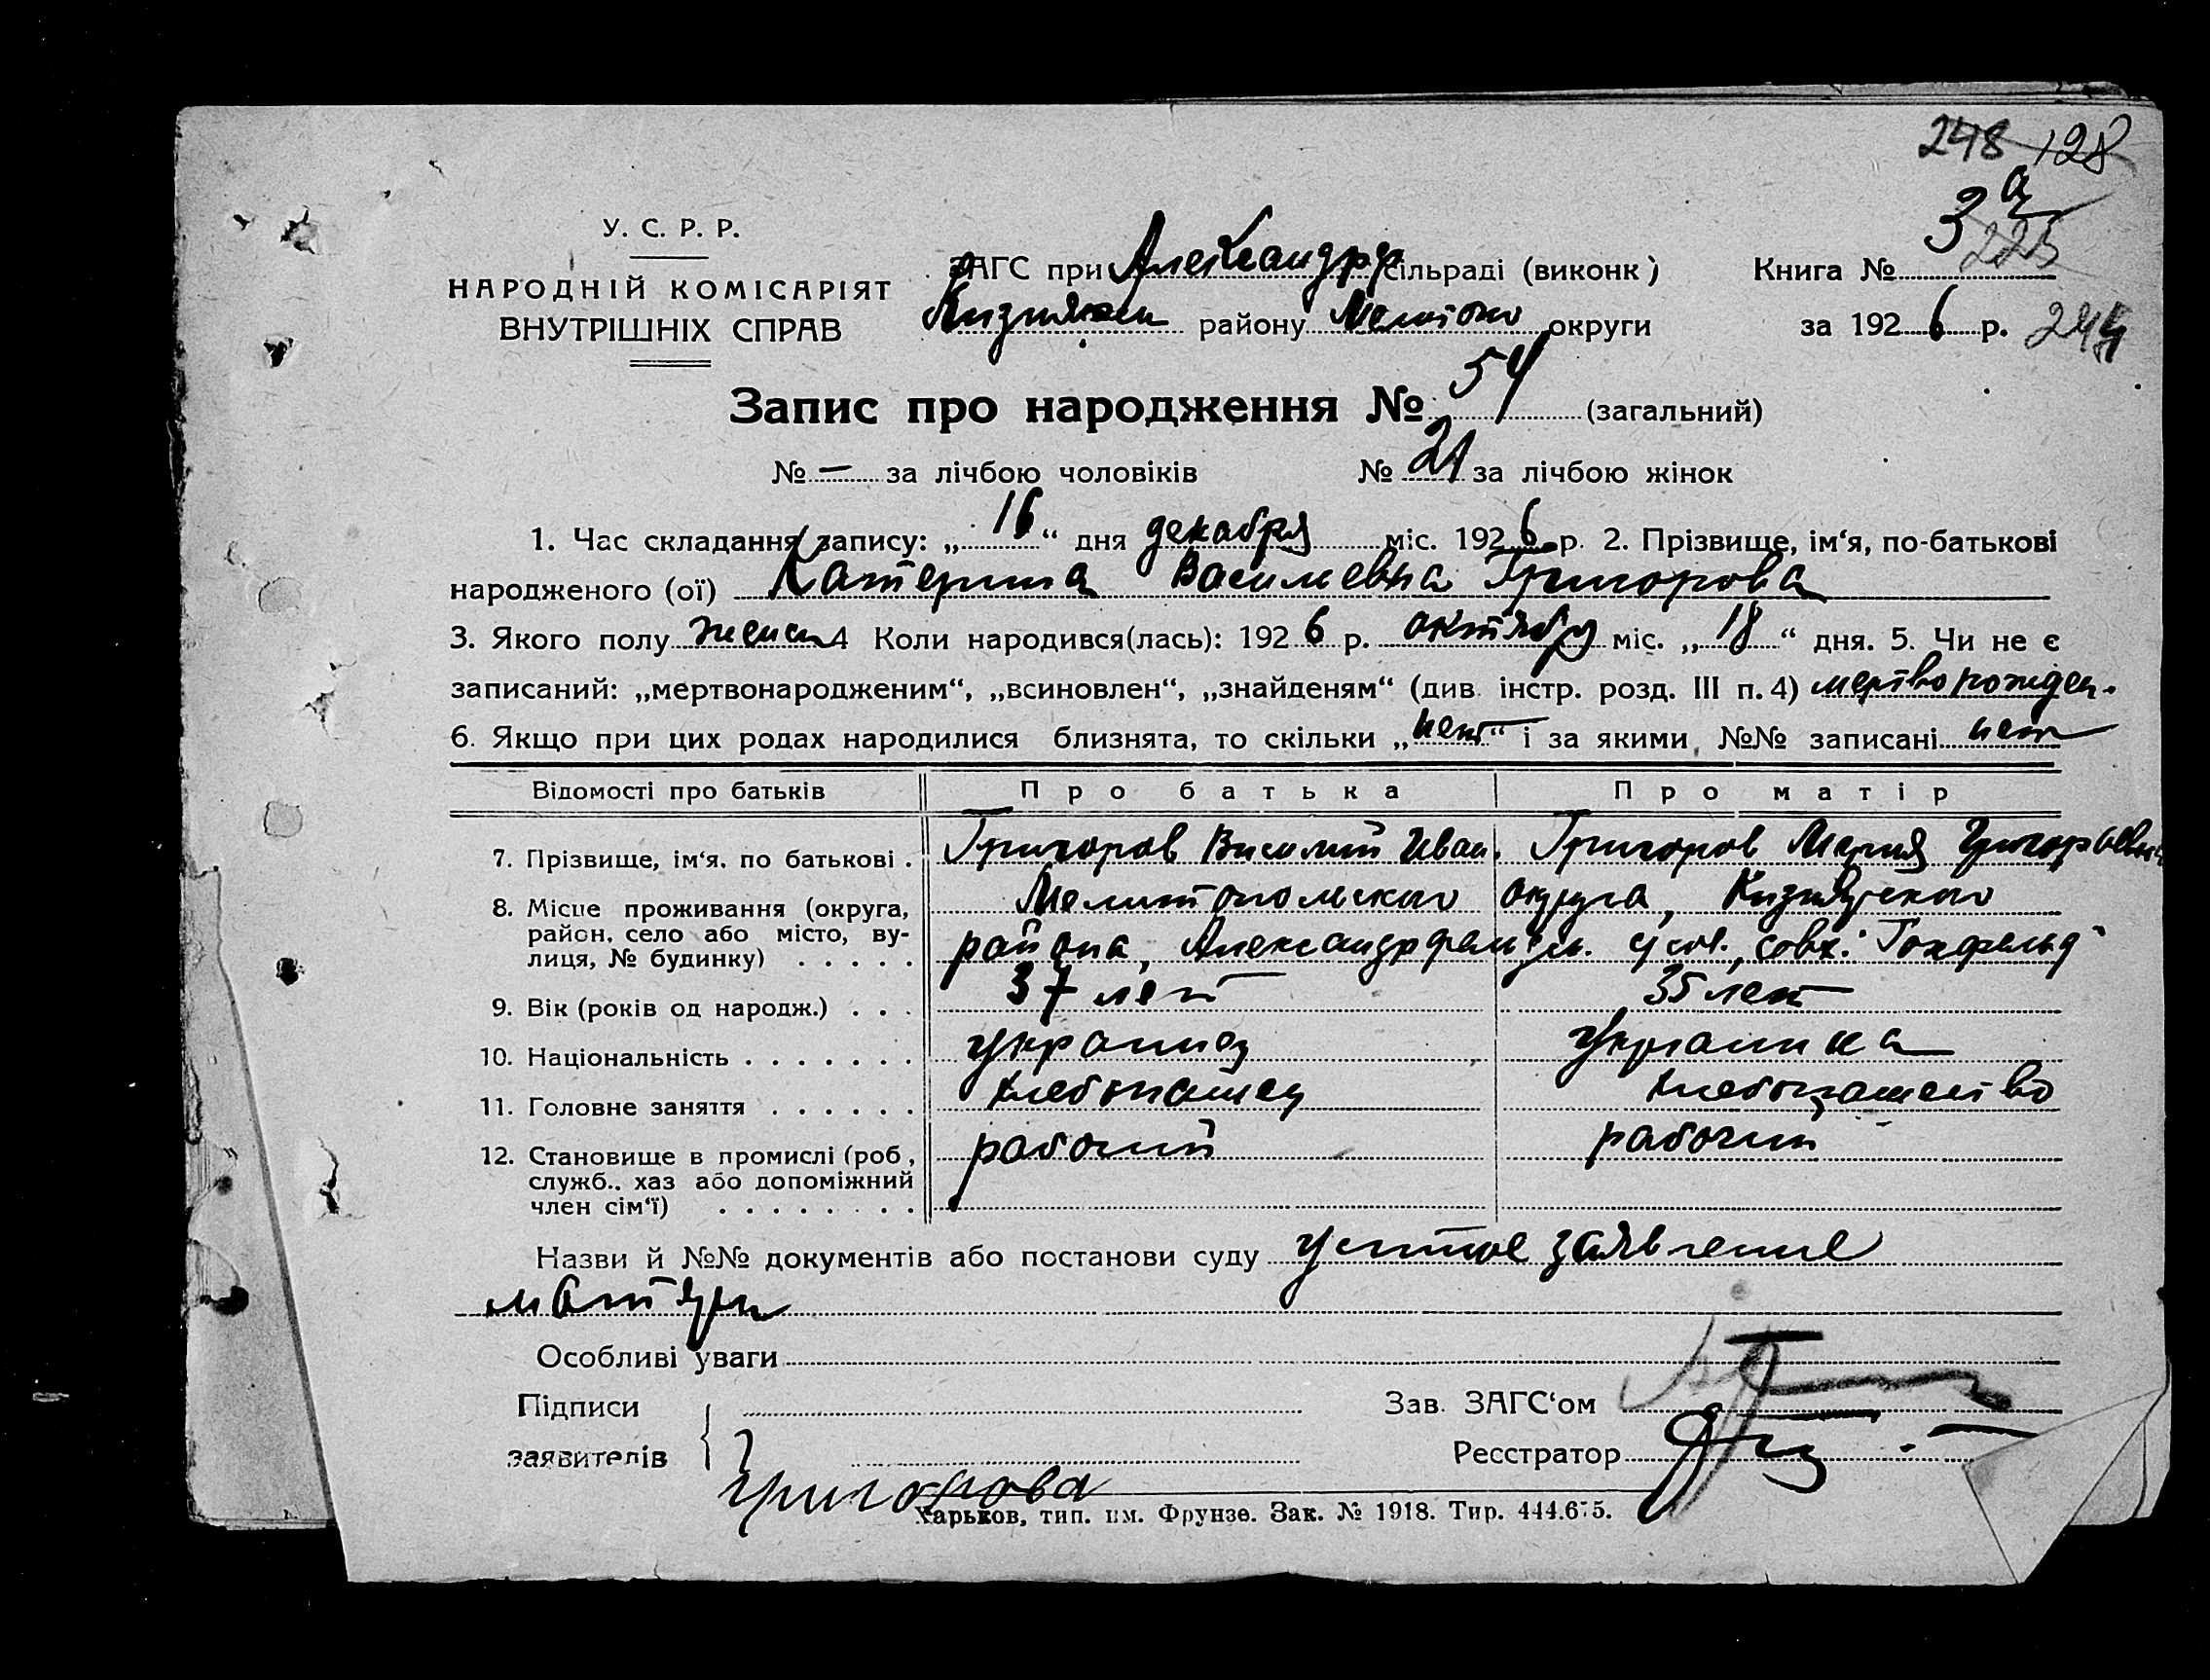 248 128
а
3
225
У. С. Р. Р.
НАРОДНІЙ КОМІСАРІЯТ
ВНУТРІШНІХ СПРАВ
ЗАГС при Александрф сільраді (виконк) Книга №
району Мелитоп округи за 1926 р. 244
Запис про народження № 54 (загальний)
№ — за лічбою чоловіків № 21 за лічбою жінок
1. Час складання запису: „16“ дня декабря міс. 1926 р. 2. Прізвище, ім‘я, по-батькові
народженого (ої) Катерина Васильевна Григорова
3. Якого полу женск 4 Коли народився(лась): 1926 р. октября міс. „18“ дня. 5. Чи не є
записаний: „мертвонародженим“, „всиновлен“, „знайденям“ (див. інстр. розд. III п. 4) мертворожден.
6. Якщо при цих родах народилися близнята, то скільки „нет“ і за якими №№ записані нет
Відомості про батьків Про батька Про матір
7. Прізвище, ім‘я, по батькові . Григоров Василий Иван. Григоров Мария Григорьевна
8. Місце проживання (округа, Мелитопольского округа,
район, село або місто, ву- района, совх. "Гохфельд"
лиця, № будинку) . . . . .
9. Вік (років од народж.) . . . 37 лет 35 лет
10. Національність . . . . . . . украинец украинка
11. Головне заняття . . . . . . хлебопашец хлебопашество
12. Становище в промислі (роб., рабочий рабочий
служб., хаз або допоміжний
член сім‘ї) . . . . . . . .
Назви й №№ документів або постанови суду устное заявление
матери
Особливі уваги
Підписи Зав. ЗАГС‘ом
заявителів Реєстратор
Григорова
Харьков, тип. им. Фрунзе. Зак. № 1918. Тир. 444.675.